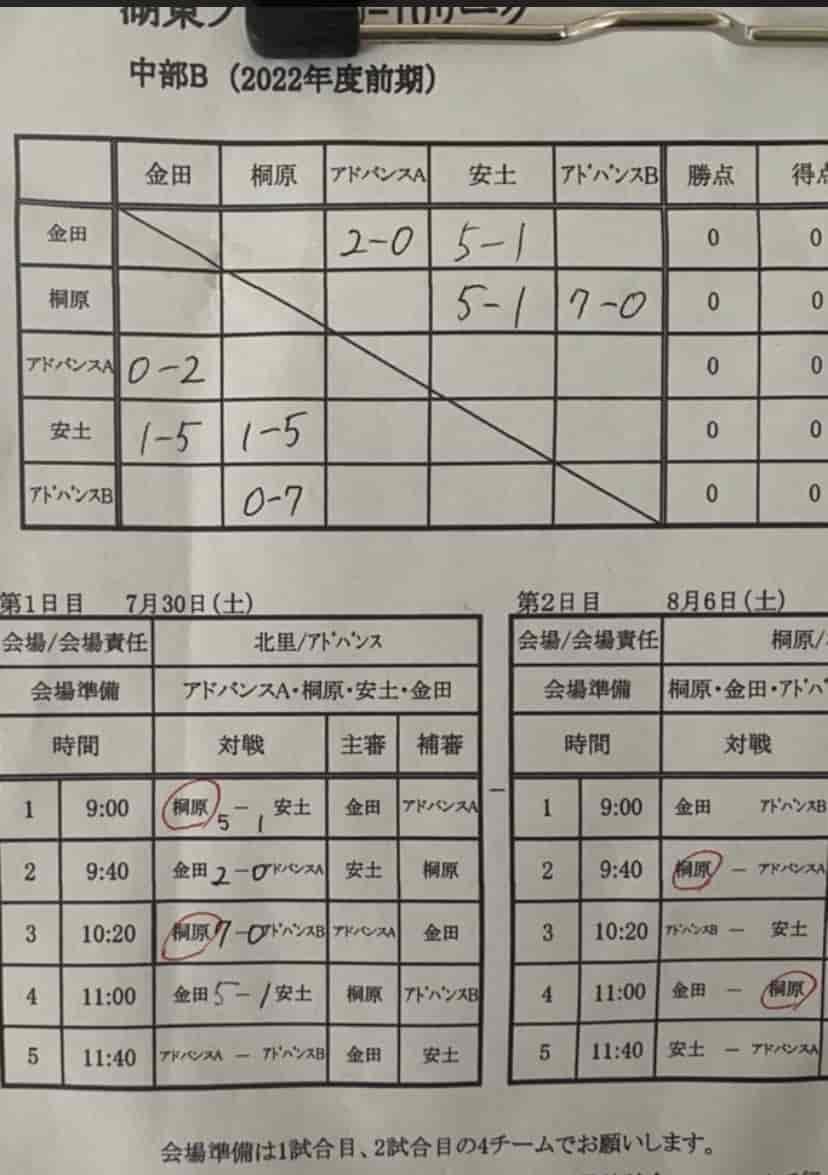 中部B（2022年度前期）
金田 桐原 アドバンスA 安土 アドバンスB 勝点
金田 2-0 5-1 0 0
桐原 5-1 7-0 0 0
アドバンスA 0-2 0 0
安土 1-5 1-5 0 0
アドバンスB 0-7 0 0
第1日目 7月30日(土)
会場/会場責任 北里/アドバンス
会場準備 アドバンスA・桐原・安土・金田
時間 対戦 主審 補審
1 9:00 桐原 5-1 安土 金田 アドバンスA
2 9:40 金田 2-0 アドバンスA 安土 桐原
3 10:20 桐原 7-0 アドバンスB アドバンスA 金田
4 11:00 金田 5-1 安土 桐原 アドバンスB
5 11:40 アドバンスA － アドバンスB 金田 安土
第2日目 8月6日(土)
会場/会場責任 桐原/
会場準備 桐原・金田・アドバ
時間 対戦
－
1 9:00 金田 アドバンスB
2 9:40 桐原 － アドバンスA
3 10:20 アドバンスB － 安土
4 11:00 金田 － 桐原
5 11:40 安土 － アドバンスA
会場準備は1試合目、2試合目の4チームでお願いします。